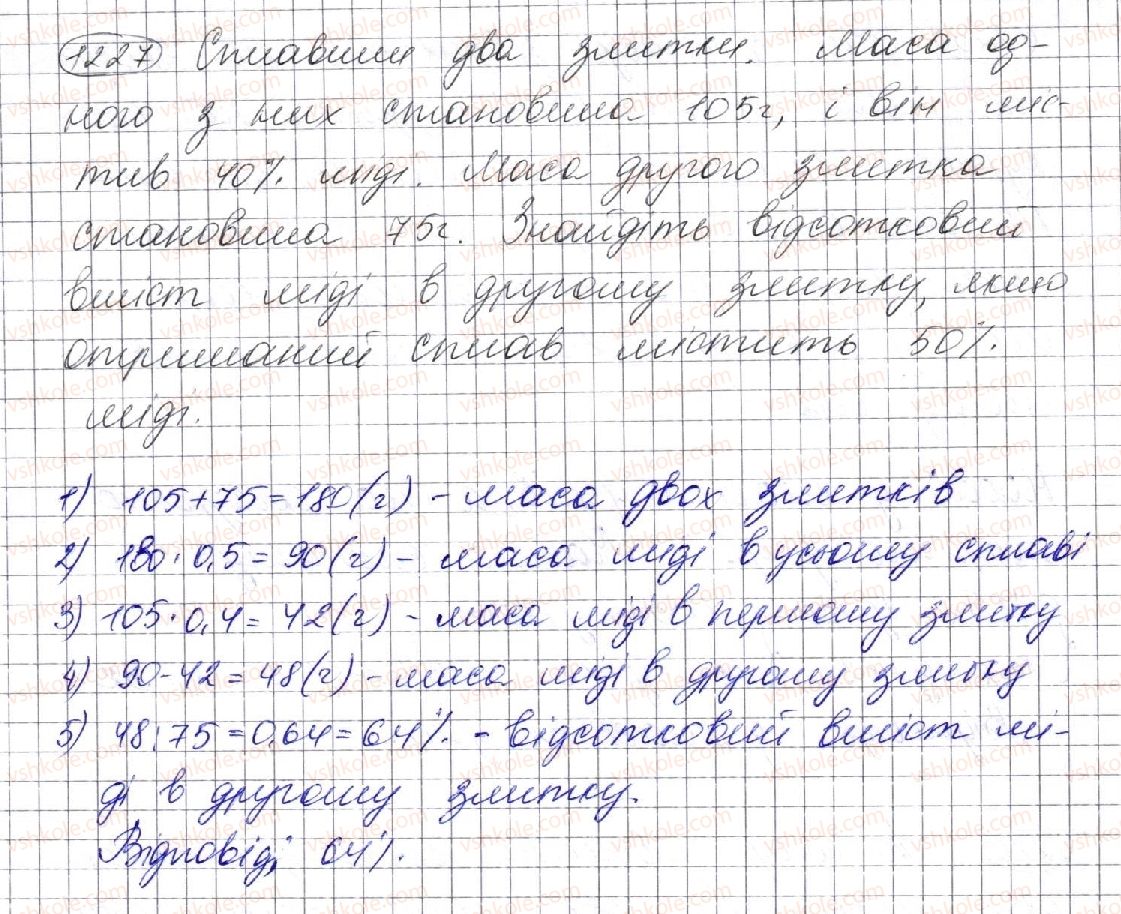 1227 Сплавили два злитки. Маса од-
ного з них становила 105г, і він міс-
тив 40% міді. Маса другого злитка
становила 75г. Знайдіть відсотковий
вміст міді в другому злитку, якщо
отриманий сплав містить 50%
міді.
1) 105+75=180(г) - маса двох злитків
2) 180·0,5=90(г) - маса міді в усьому сплаві
3) 105·0,4=42(г) - маса міді в першому злитку
4) 90-42=48(г) - маса міді в другому злитку
5) 48:75=0,64=64% - відсотковий вміст мі-
ді в другому злитку.
Відповідь: 64%.
vshkole.com